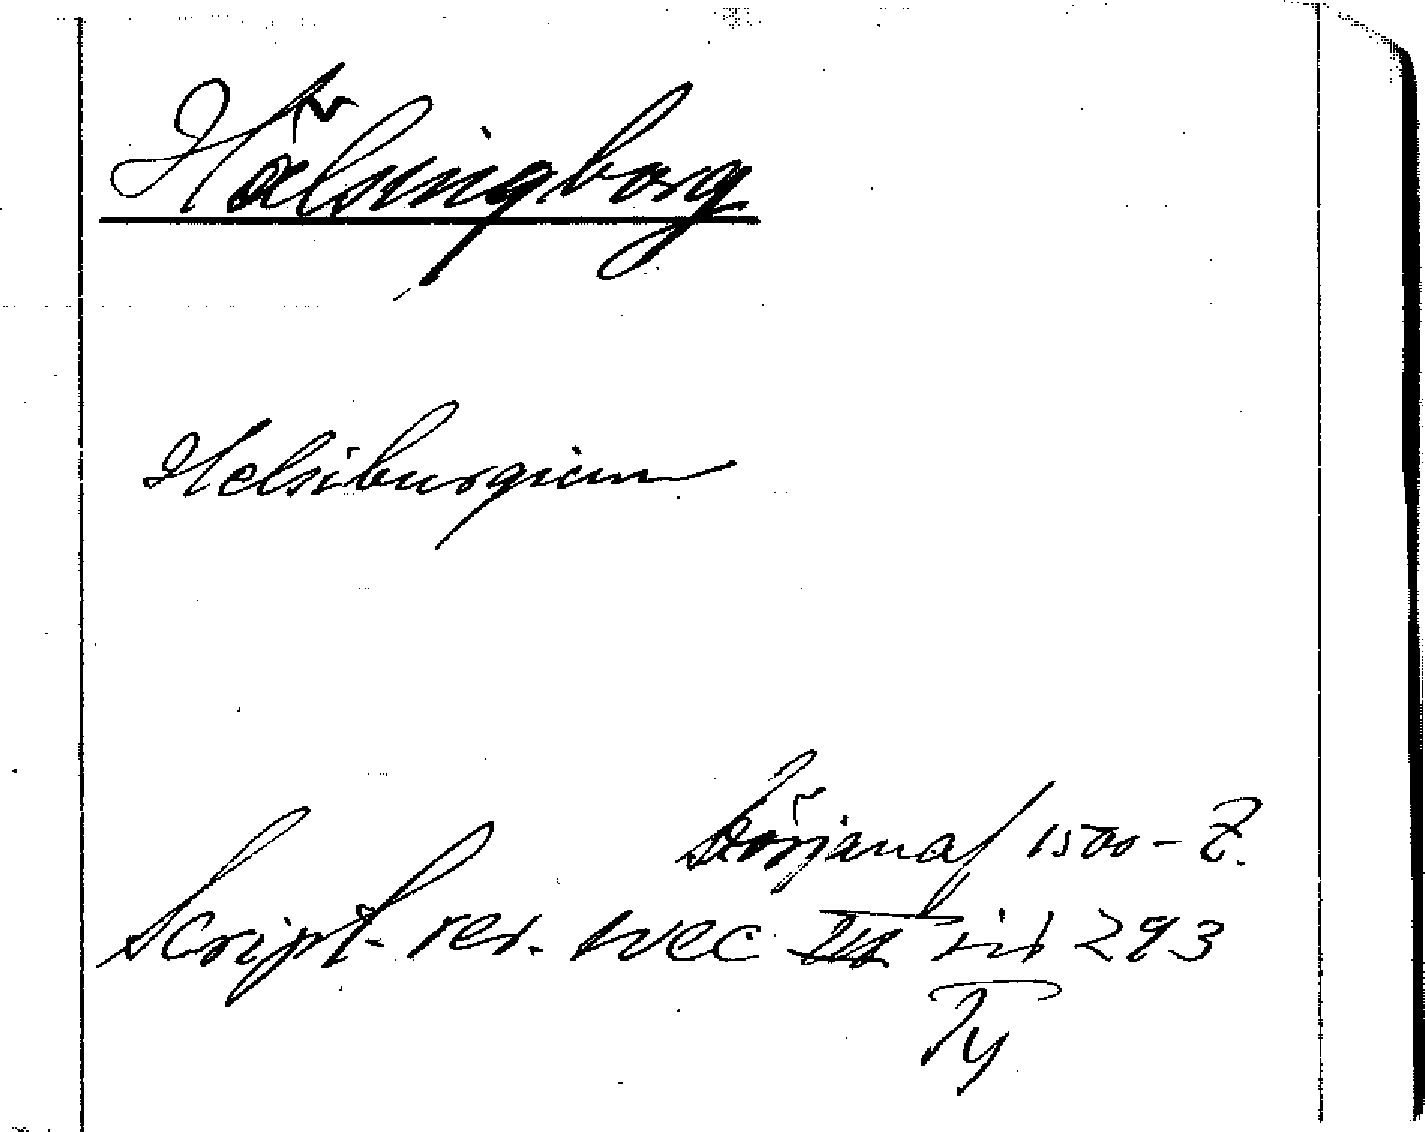 Hälsingborg
Helsiburgium
början af 1500-t.
Script. rer. svec III sid 293
Ty